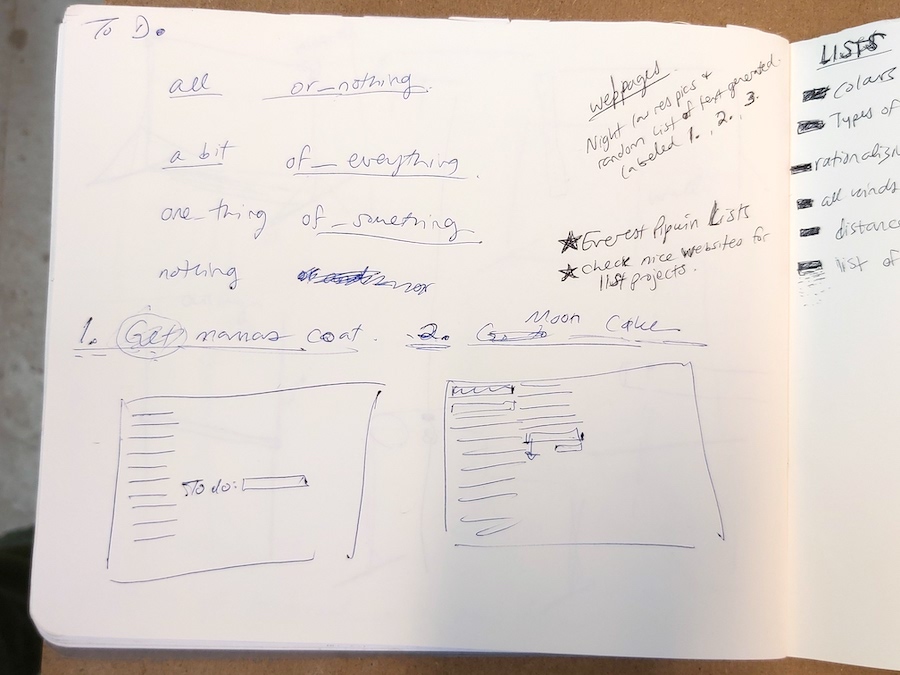 To Do
all or_nothing.
a bit of_everything.
one_thing of_something.
nothing
webpages.
Night low res pics +
random list of text generated.
labeled 1., 2., 3.
★ Everest Pipkin Lists
★ check nice websites for
list projects.
1. Get mamas coat. 2. Moon Cake
To do:
LISTS
Colours
Types of
rationalism
all kinds
distance
list of